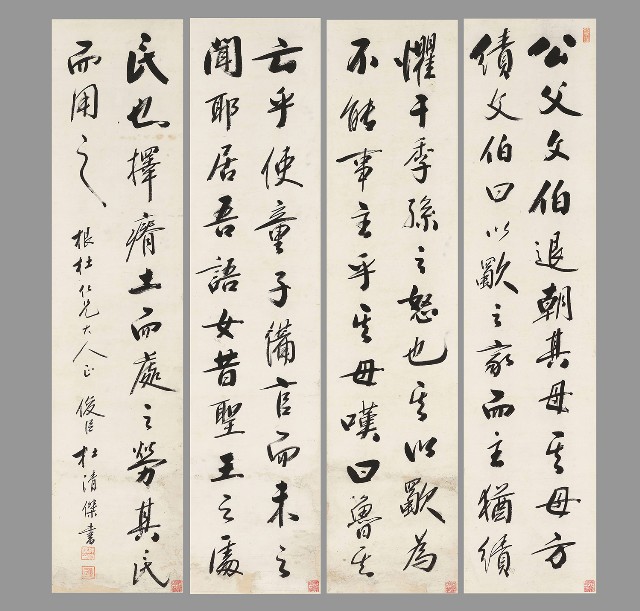 公父文伯退朝其母其母方
績文伯曰以歜之家而主猶績
懼干季孫之怒也其以歜為
不能事主乎其母嘆曰魯其
亡乎使童子備官而未之
聞耶居吾語女昔聖王之處
民也擇瘠土而處之勞其民
而用之
根杜仁兄大人正 俊臣杜清傑書